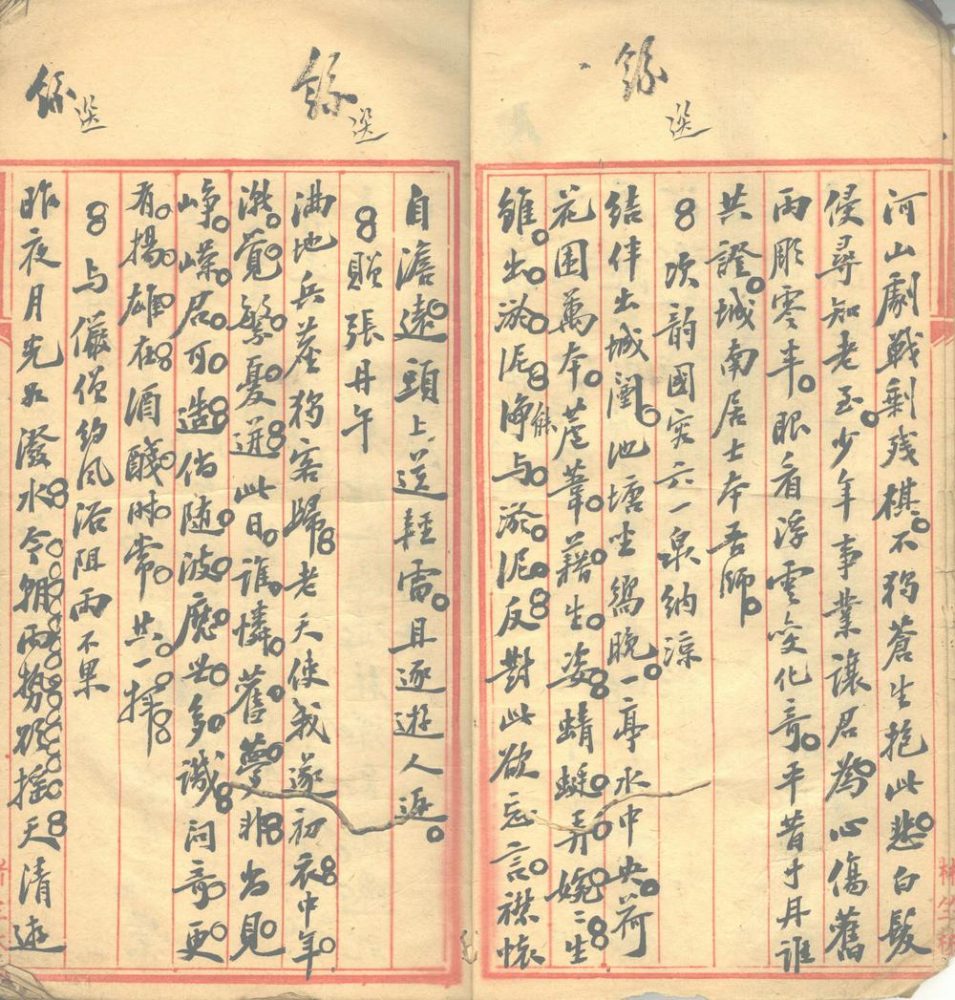 錄選
河山劇戰剩殘棋不獨蒼生抱此悲白髮
侵尋知老至少年事業讓君為心傷舊
雨彫零半眼看浮雲變化奇平昔寸丹誰
共證城南居士本吾師
次韵國容六一泉納涼
結伴出城闉池塘坐晚一亭水中央荷
花圍萬本蘆葦藉生姿蜻蜓弄婉〻生
雖出淤泥能淨与淤泥反對此欲忘言襟懷
錄選
自澹遠頭上送輕雷且逐遊人返
贈張丹午
滿地兵塵獨客歸老天使我遂初衣中年
漸覺繁憂迸此日誰憐舊夢非尚見
崢嶸君可造倘隨波靡世多譏問奇更
有揚雄在酒醆時常共一揮
錄選
与儼僧約風浴阻雨不果
昨夜月光如潑水今朝雨勢欲搖天清遊